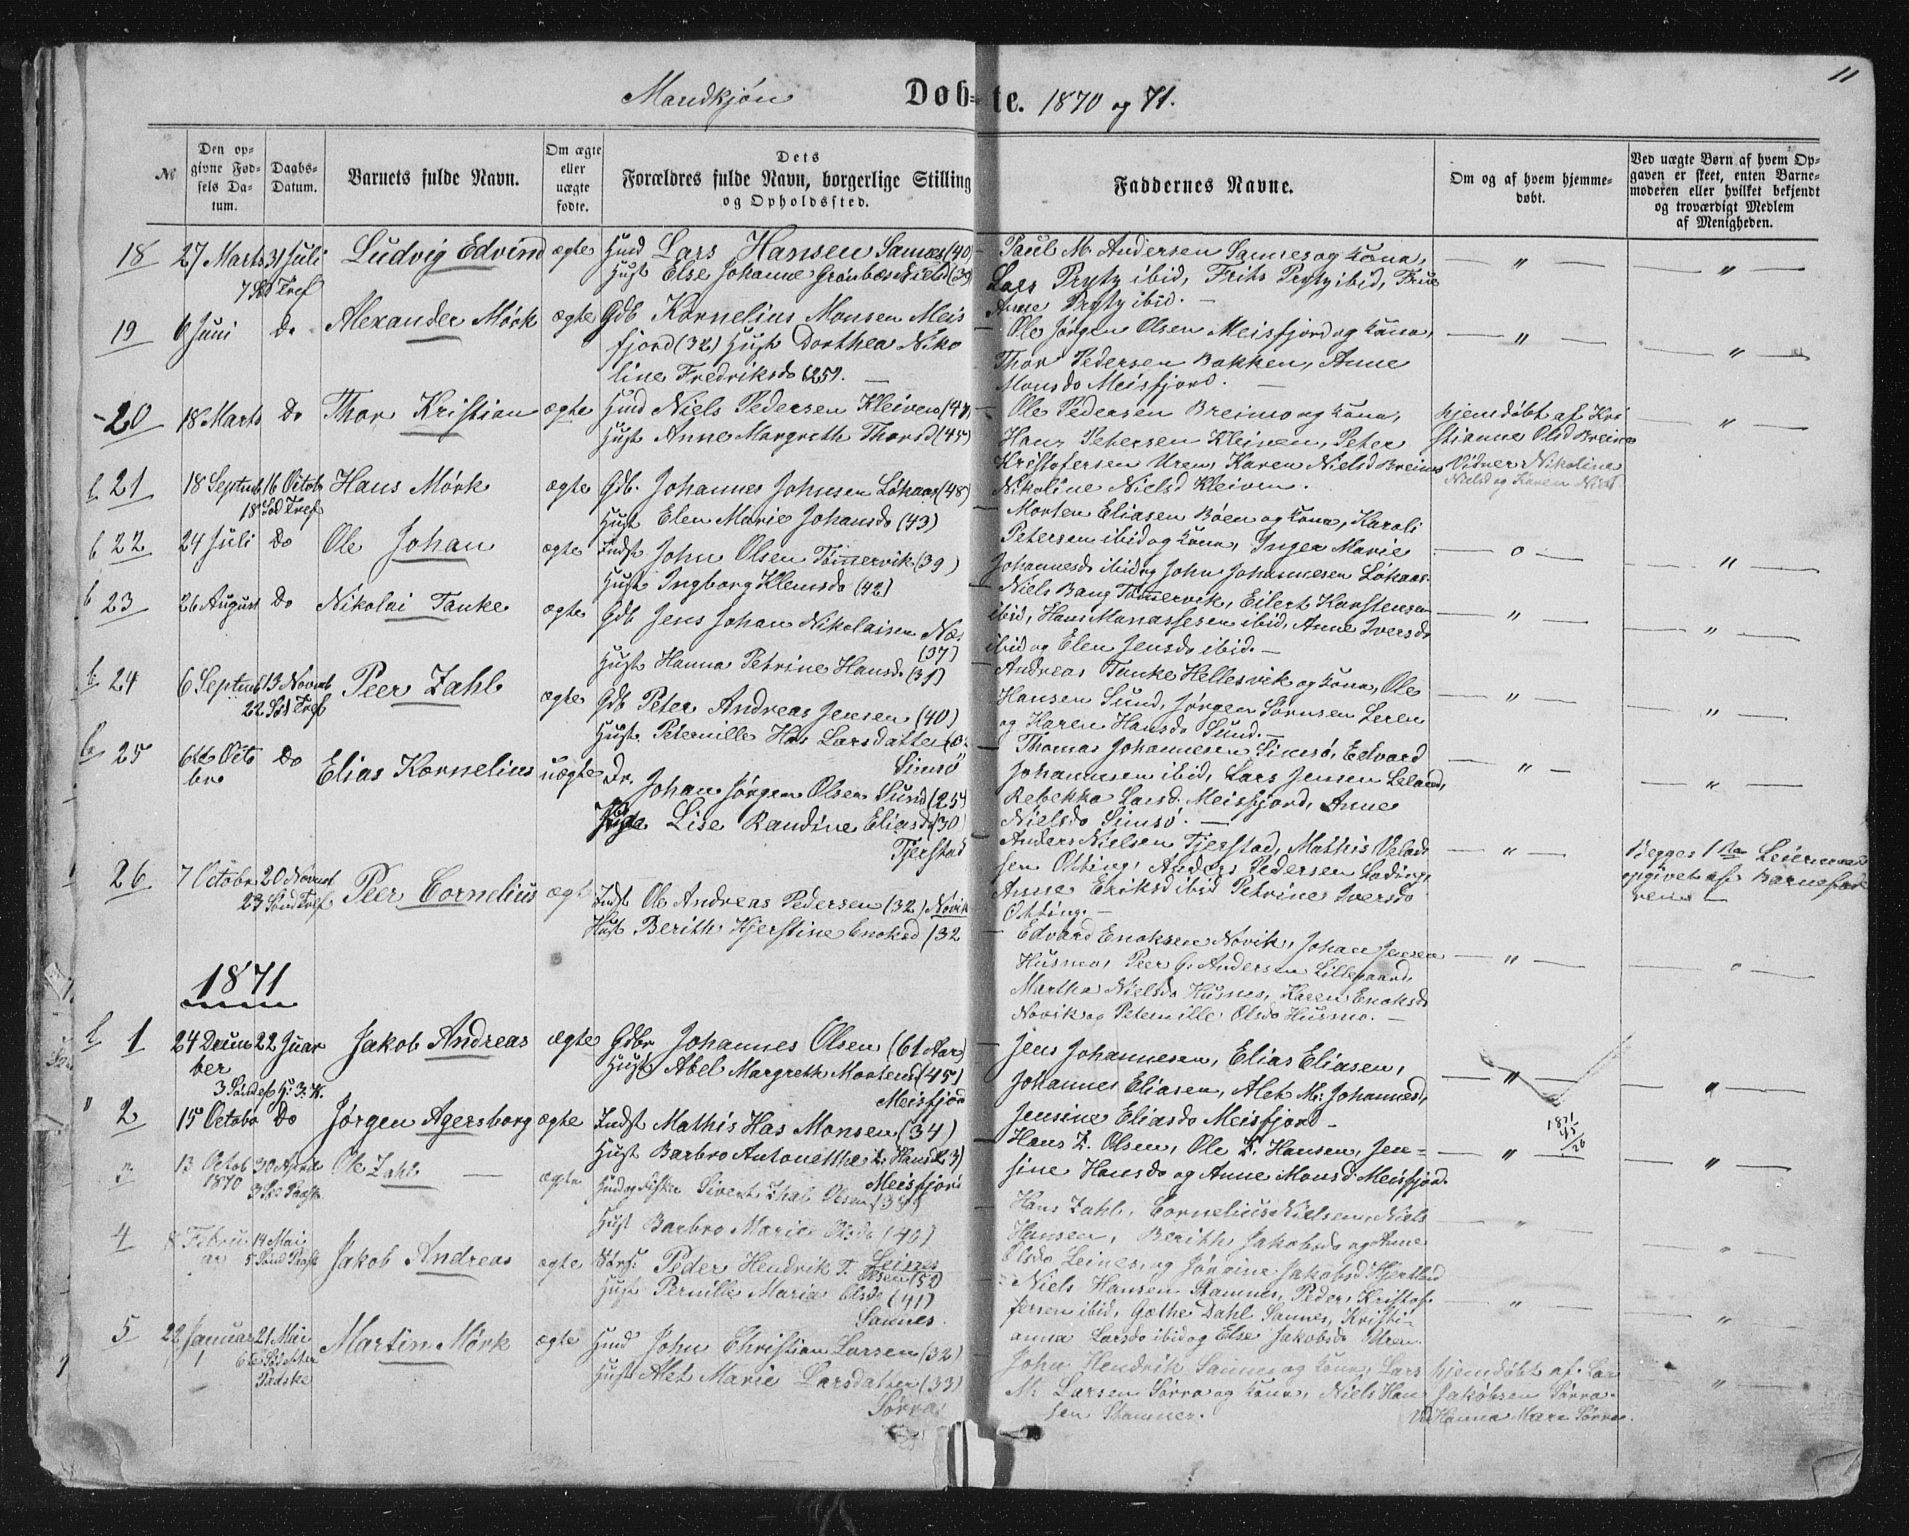 11
Mandkjøn Døbte. 1870 og 71.
№
Den opgivne Fødsels Datum.
Daabs-Datum.
Barnets fulde Navn.
Om ægte eller uægte fødte.
Dets Forældres fulde Navn, borgerlige Stilling og Opholdssted.
Faddernes Navne.
Om og af hvem hjemmedøbt.
Ved uægte Børn af hvem Opgaven er skeet, enten Barnemoderen eller hvilket bekjendt og troværdigt Medlem af Menigheden.
18 27 Marts 31 Juli Ludvig Edvind ægte Lars Hansen Sannes (40)
Hust Else Johanna
Paul M. Andersen Sannes og Kona,
Lars Pryty ibid, Frits Pryty ibid, Frue
Anne Pryty ibid.
19 6 Juni Do Alexander Mörk ægte Gdb Kornelius Monsen Meis
fjord (32) Hust Dorthea Niko
line Fredriksd (25).
Ole Jørgen Olsen Meisfjord og Kona,
Thor Pedersen Bakken, Anne
Monsd Meisfjord.
20 18 Marts Do Thor Kristian ægte Niels Pedersen Kleiven (47)
Hust Anne Margreth Thorsd (45)
Ole Pedersen Breimo og Kona,
Hans Petersen Kleiven, Peter
Kristofersen Uren, Karen Nielsd Breimo
Nikoline Nielsd Kleiven.
hjemdøbt af Kri
stianne Olsd Breimo
Vidner Nikolina
Nielsd og Karen Niels
21 18 Septemb 16 Octob Hans Mörk ægte Gdb. Johannes Johnsen Løkaas (48)
18 Sød Tref
Hust Elen Marie Johansd (43)
Morten Eliasen Bøen og Kona, Karoli
Petersen ibid og Kona, Inger Marie
Johannesd ibid og John Johannesen Løkaas
22 24 Juli Do Ole Johan ægte Indst John Olsen Tømmervik (39)
Hust Ingborg Klemsd (42)
Niels Bang Tømmervik, Eilert Karstensen
ibid, Hans Manassesen ibid, Anne Iversd
ibid og Elen Jensd ibid.
23 26 August Do Nikolai Tanke ægte Gdb Jens Johan Nikolaisen Næs
(37)
Hust Hanna Petrine Hansd (31)
Andreas Tanke Hellesvik og Kona, Ole
Hansen Sund, Jørgen Sørensen Leren
og Karen Hansd Sund.
24 6 Septemb 13 Novemb Peer Zahl ægte Gdb Peter Andreas Jensen (40)
22 Sød Tref
Hust Peternille Has Larsdatter
Simsö
Thomas Johannesen Simsö, Edvard
Johannesen ibid, Lars Jensen Leland,
Rebekka Larsd. Meisfjord, Anne
Nielsd Simsö.
25 6te Octobro Do Elias Kornelius uægte Dr. Johan Jørgen Olsen Sund (25)
Lise Randine Eliasd (30)
Tjerstad
Anders Nielsen Tjerstad, Mathis
Otting, Anders Pedersen
Anne Eriksd ibid Petrine Iversd
Otting.
Begges 1ste Leiermaal
opgivet af Barnefade
ren
26 7 Octobr 20 Novemb Peer Cornelius ægt Indst Ole Andreas Pedersen (32) Novik
23 Sønd Tref
Hust Berith Kjerstine Enoksd (32
Edvard Enoksen Novik, Johan Jensen
Husmo, Peer C. Andersen Lillegaard,
Martha Nielsd Husmo, Karen Enoksd
Novik og Peternille Olsd Husmo.
1871
1 24 December 22 Januar Jakob Andreas ægte Gdbr Johannes Olsen (61 Aar)
Hust Abel Margreth Mortensd (45)
Meisfjord
Jens Johannesen, Elias Eliasen,
Johannes Eliasen, Alet M: Johannesd,
Jensine Eliasd Meisfjord
2 15 Octobr Do Jørgen Agersborg ægte Indst Mathis Has Monsen (34)
Hust Barbro Antonette
Meisfjord
1871
45
26
Hans Z. Olsen, Ole Z. Hansen, Jen-
sine Hansd og Anne Monsd Meisfjord.
3 13 Octob 1870 30 April Ole Zahl ægte Sivert Zhal Olsen
Hust Barbro Maria Olsd (40)
Leines
Hans Zahl, Cornelius Nielsen, Niels
Hansen, Berith Jakobsd og Anne
Olsd Leines, og Jakobsd Hjertlid
4 8 Februar 14 Mai Jakob Andreas ægte Peder Hendrik T. Olsen (52)
Hust Pernille Maria Olsd (41)
Sannes.
Niels Hansen Stamnes, Peder Kristof
fersen ibid, Gøthe Dahl Sannes, Kristi-
anna Larsd ibid og Else Jakobsd Uren.
5 22 Januar 21 Mai Martin Mörk ægte John Christian Larsen (32)
Hust Alet Marie Larsdatter (33)
Sørra
John Hendrik Sannes og Kona, Lars
M: Larsen Sørra og Kona, Niels Han
sen Stamnes.
hjemdøbt af La
Jakobsen Sørra.
Hanna Sørra.